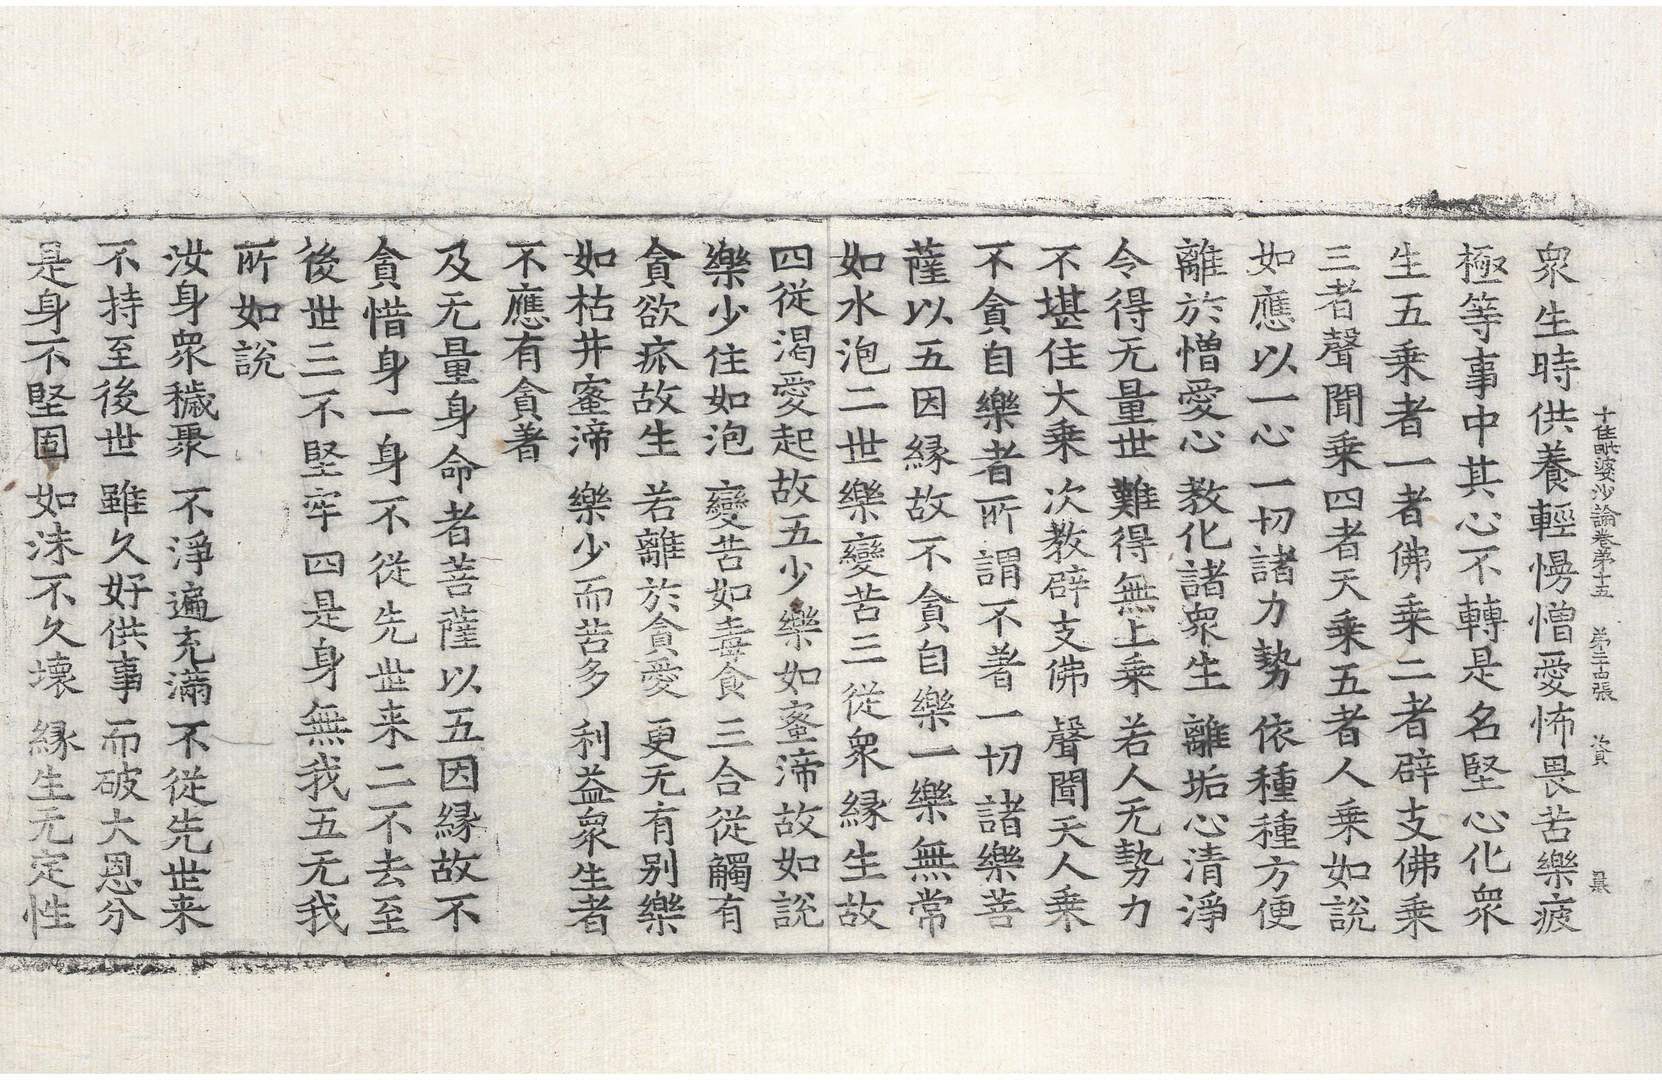 十住毗婆沙論卷苐十五　苐二十四張　資
衆生時供養輕慢憎愛怖畏苦樂疲
極等事中其心不轉是名堅心化衆
生五乘者一者佛乘二者辟支佛乘
三者聲聞乘四者天乘五者人乘如說
如應以一心　一切諸力勢　依種種方便
離於憎愛心　教化諸衆生　離垢心清淨
令得无量世　難得無上乘　若人无勢力
不堪住大乘　次教辟支佛　聲聞天人乘
不貪自樂者所謂不著一切諸樂菩
薩以五因縁故不貪自樂一樂無常
如水泡二世樂變苦三從衆縁生故
四從渴愛起故五少樂如蜜渧故如說
樂少住如泡　變苦如毒食　三合從觸有
貪欲疢故生　若離於貪愛　更无有別樂
如枯井蜜渧　樂少而苦多　利益衆生者
不應有貪著
及无量身命者菩薩以五因縁故不
貪惜身一身不從先世来二不去至
後世三不堅牢四是身無我五无我
所如說
汝身衆穢聚　不淨遍充滿　不從先世来
不持至後世　雖久好供事　而破大恩分
是身不堅固　如沫不久壞　縁生无定性